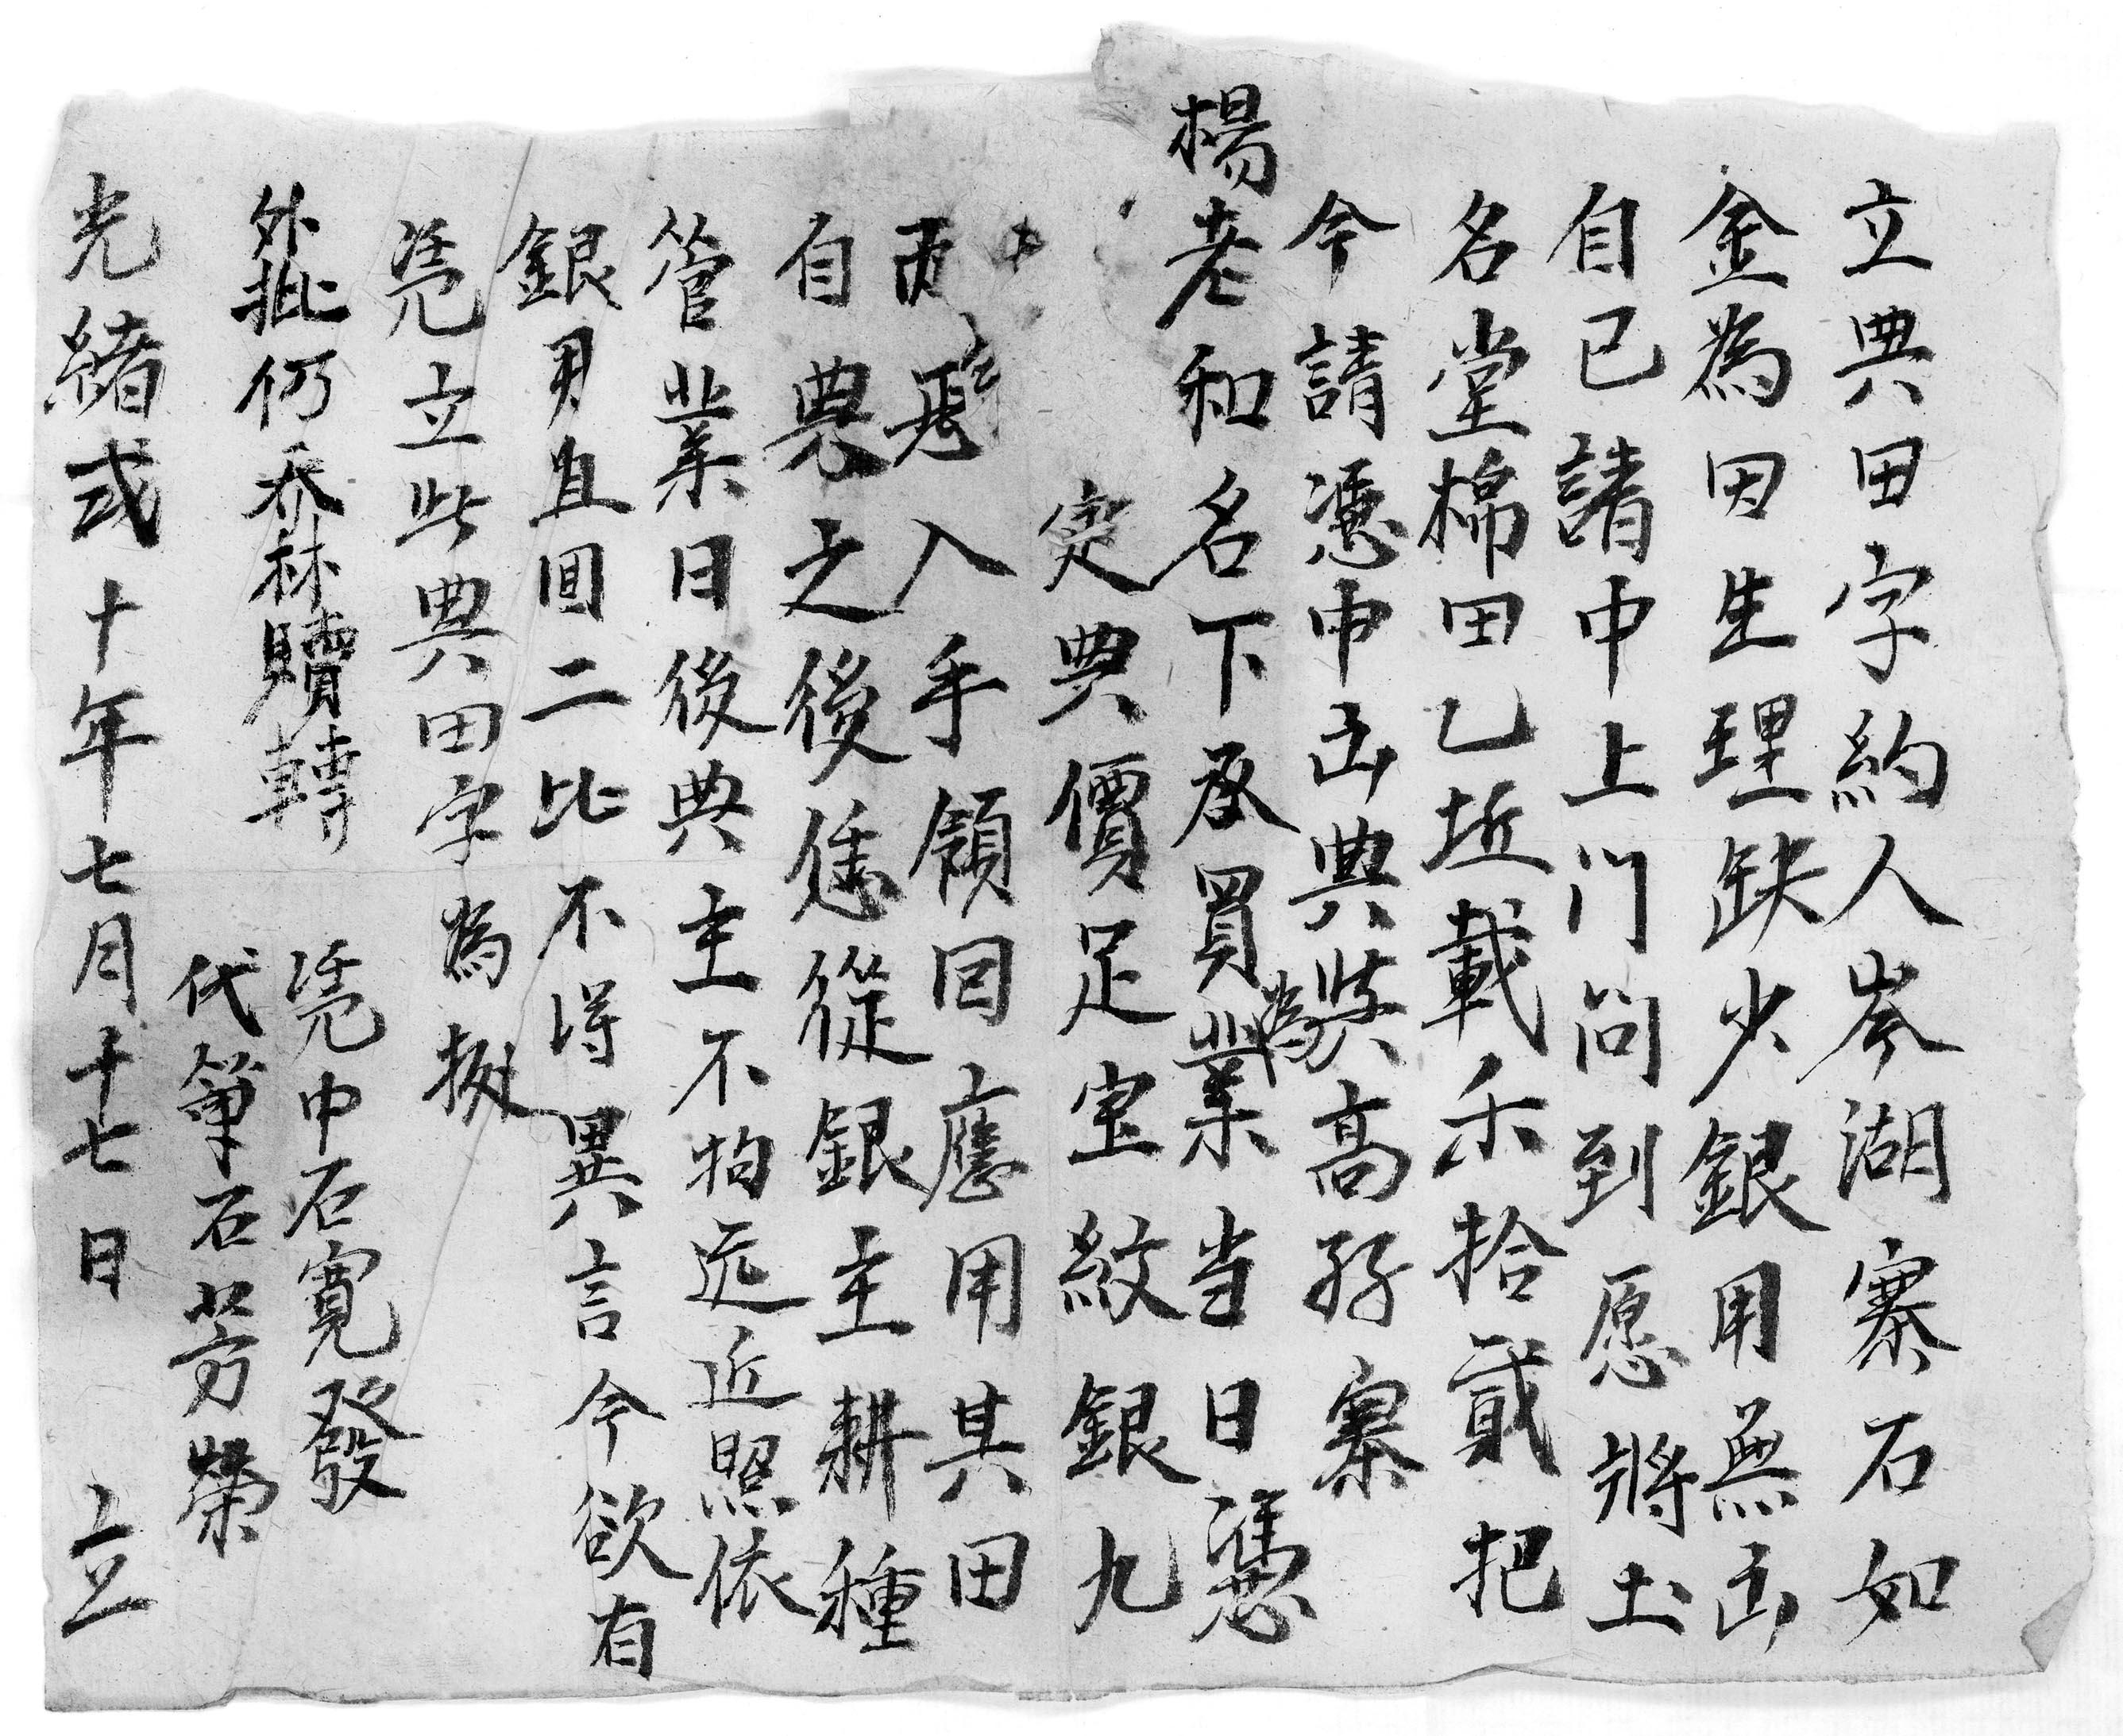 立典田字約人岑湖寨石如
金為因生理缺少銀用無出
自已請中上门问到愿將土
名堂棉田乙坵載禾拾貳把
今請憑中出典與為高孖寨
楊老和名下承買業当日憑
中定典價足定紋銀九
両入手領回應用其田
自典之後恁從銀主耕種
管業日後典主不拘远近照依
銀另且囬二比不得異言今欲有
凴立此典田字為據
外批仍喬林贖轉
凴中石寬發
代筆石芳榮
光緒弍十年七月十七日 立